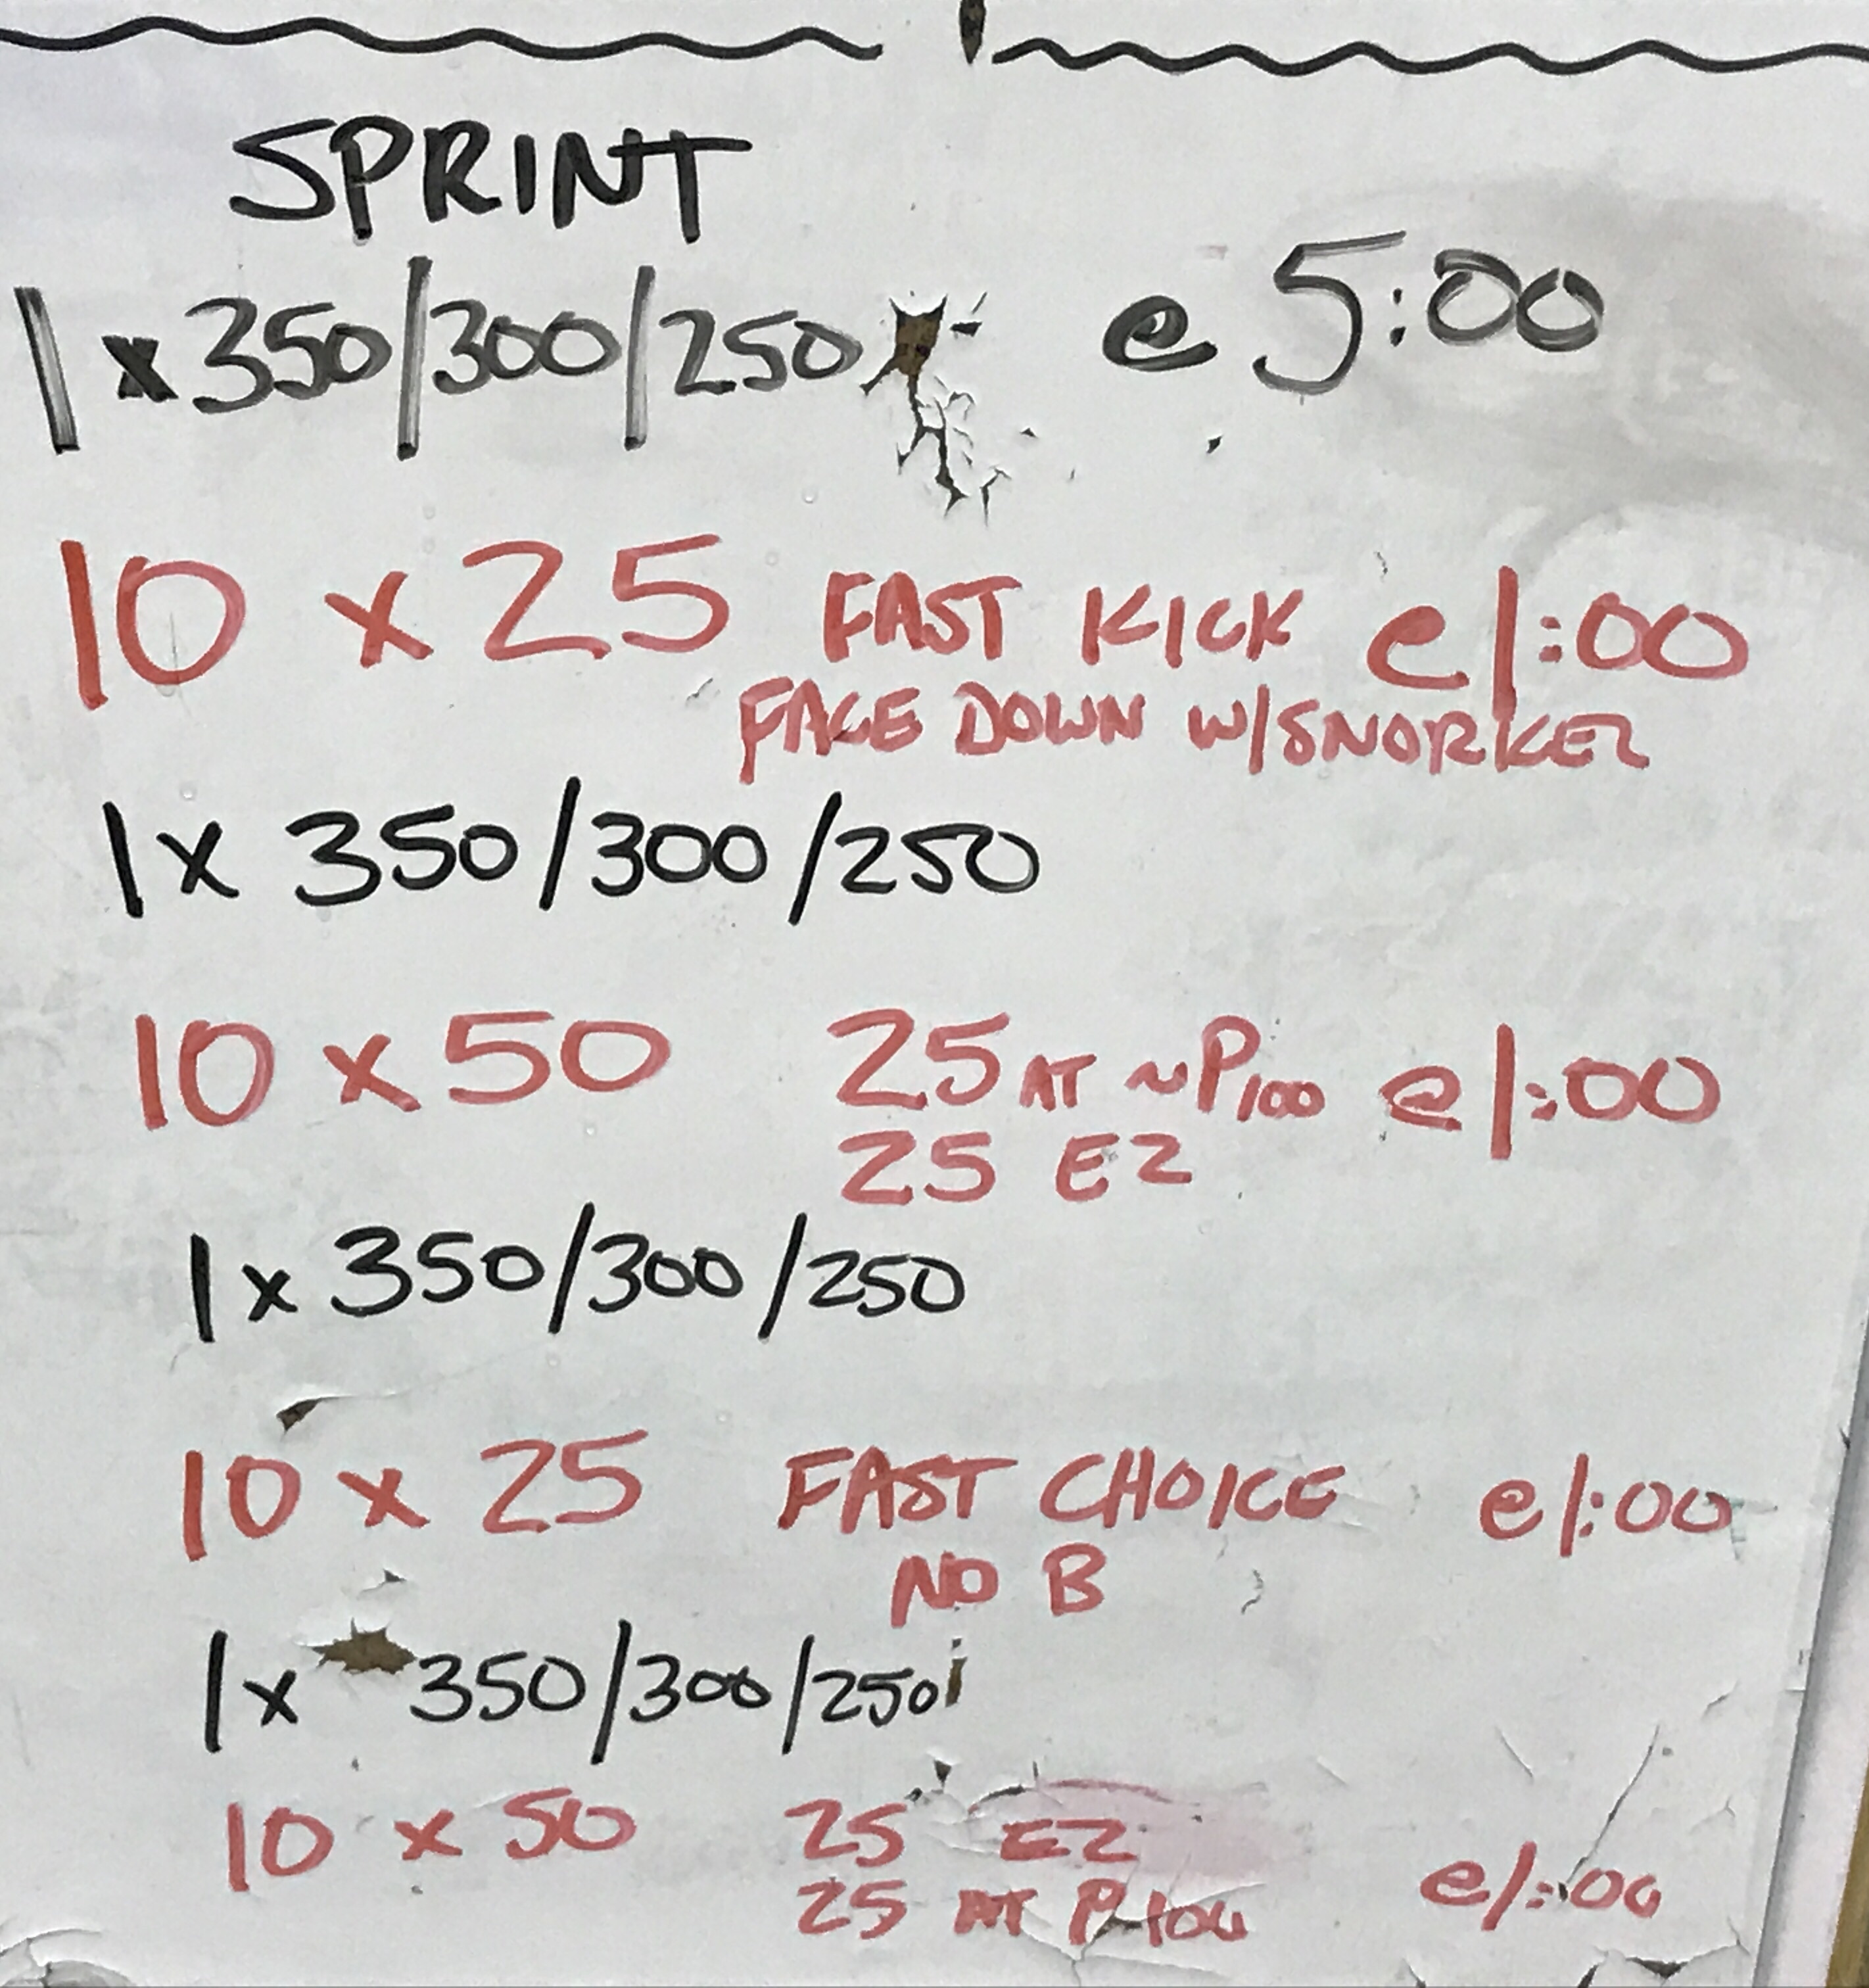 SPRINT
1 x 350/300/250 @ 5:00
10 x 25 FAST KICK @ 1:00
FACE DOWN W/SNORKEL
1 x 350/300/250
10 x 50 25 AT ~P100 @ 1:00
25 EZ
1 x 350/300/250
10 x 25 FAST CHOICE @ 1:00
NO B
1 x 350/300/250
10 x 50 25 EZ @ 1:00
25 AT P100